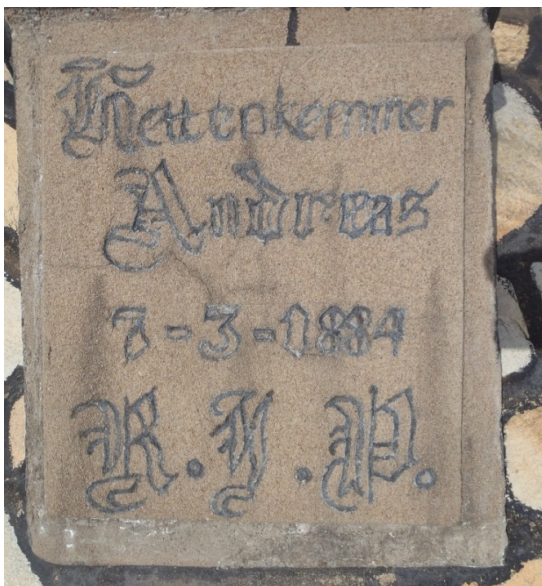 Kettenkemmer
Andreas
7-3-1884
R.I.P.